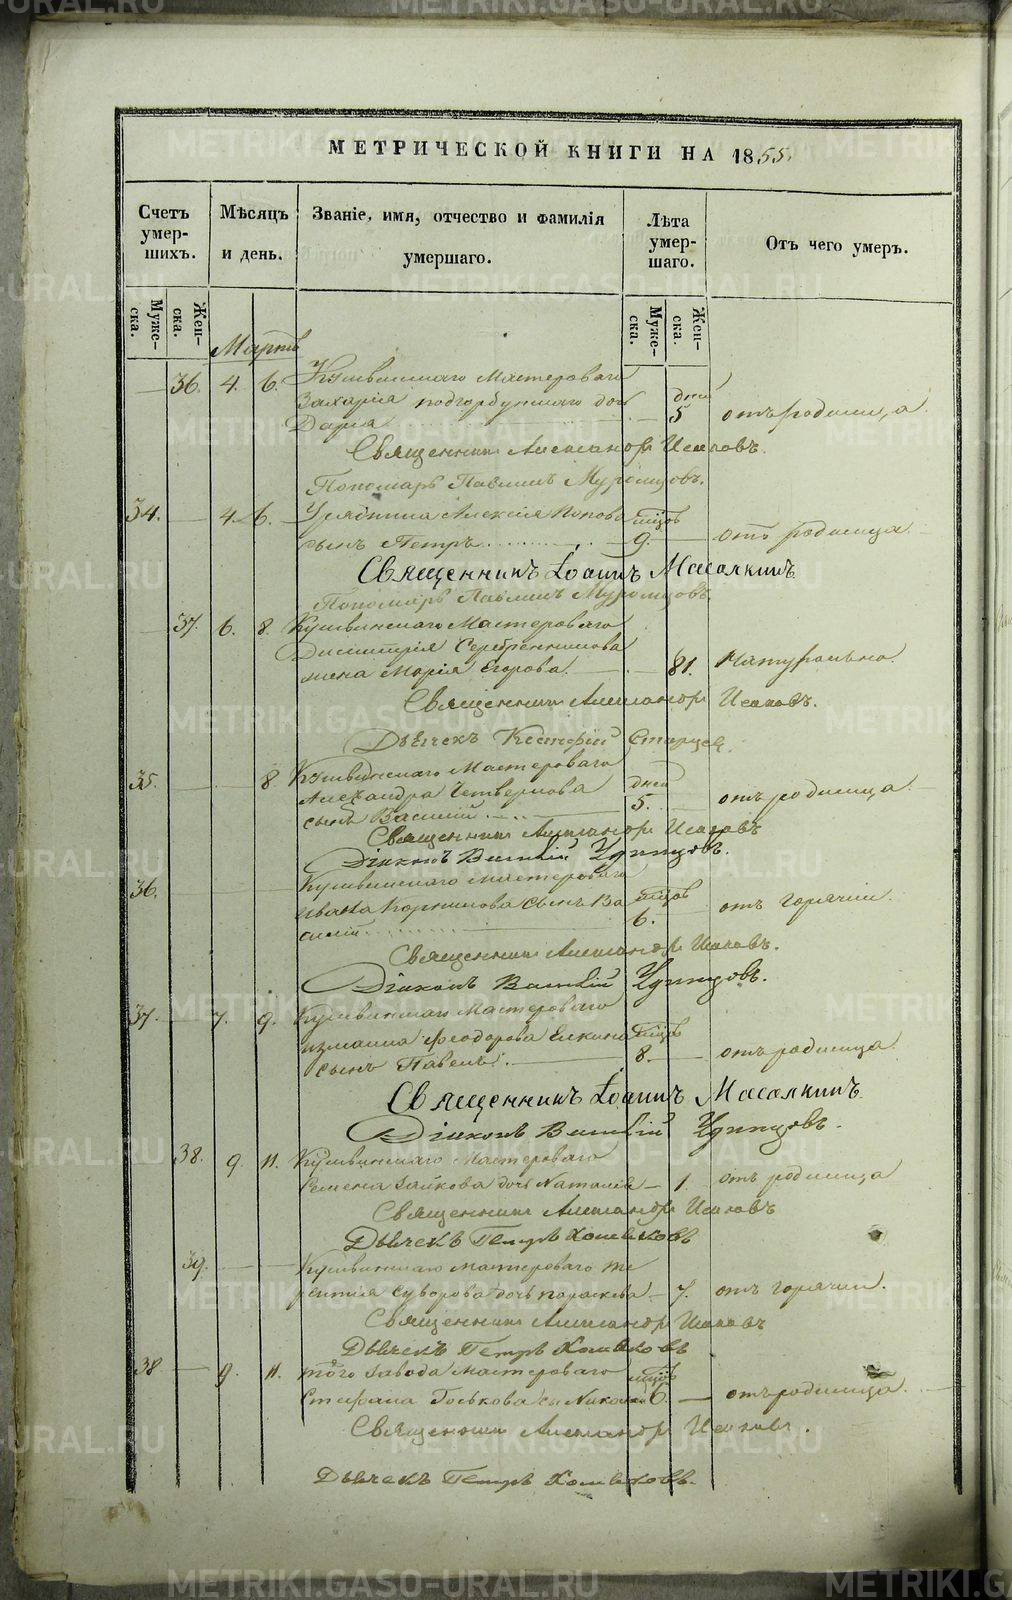 МЕТРИЧЕСКОЙ КНИГИ НА 1855.
Счетъ умер-шихъ.
Мѣсяцъ и день.
Званіе, имя, отчество и фамилія умершаго.
Лѣта умер-шаго.
Отъ чего умеръ.
Муже-ска.
Жен-ска.
Муже-ска.
Жен-ска.
Мартъ
36. 4. 6. Кушвинскаго Мастероваго
Захарія Подгорбунскаго дочь дней
Дарія 5 отъ родимца.
Священникъ Александръ Исаковъ.
Пономарь Павлинъ Муромцовъ.
34. 4. 6. Урядника Алексія Попова мѣсяцовъ
сынъ Петръ 9. отъ родимца.
Священникъ Іоаннъ Масалкинъ
Пономарь Павлинъ Муромцовъ.
37. 6. 8. Кушвинскаго Мастероваго
Димитрія Серебренникова
жена Марія Егорова. 81. Натурально.
Священникъ Александръ Исаковъ.
Дьячекъ Старцев.
35. 8 Кушвинскаго Мастероваго
Александра Четверкова дней
сынъ Василій 5. отъ родимца.
Священникъ Александръ Исаковъ
Діаконъ Василій Удинцовъ.
36. Кушвинскаго мастероваго
Ивана Корнилова сынъ Ва мѣсяцовъ
силій 6. отъ горячки.
Священникъ Александръ Исаковъ.
Діаконъ Василій Удинцовъ.
37. 7. 9. Кушвинскаго Мастероваго
Измаила Феодорова Елкина
сынъ Павелъ. 8. отъ родимца
Священникъ Іоаннъ Масалкинъ
Діаконъ Василій Удинцовъ.
38. 9. 11. Кушвинскаго Мастероваго
Семена Зайкова дочь Наталія 1. отъ родимца
Священникъ Александръ Исаковъ
Дьячекъ Петръ Хомяковъ
39. Кушвинскаго мастероваго Те
рентія Суворова дочь Параскева 7. отъ горячки.
Священникъ Александръ Исаковъ
Дьячекъ Петръ Хомяковъ
38 9. 11. того завода мастероваго
Стефана Госькова сы Николай 6. отъ родимца.
Священникъ Александръ Исаковъ.
Дьячекъ Петръ Хомяковъ.
METRIKI.GASO-URAL.RU